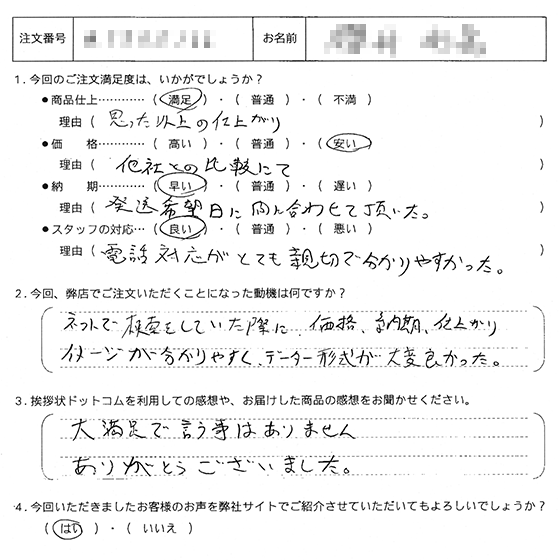 注文番号 お名前
1．今回のご注文満足度は、いかがでしょうか？
●商品仕上…………（ 満足 ）・（ 普通 ）・（ 不満 ）
理由（ 思った以上の仕上がり ）
●価　　格…………（ 高い ）・（ 普通 ）・（ 安い ）
理由（ 他社との比較にて ）
●納　　期…………（ 早い ）・（ 普通 ）・（ 遅い ）
理由（ 発送希望日に間に合わせて頂いた。 ）
●スタッフの対応…（ 良い ）・（ 普通 ）・（ 悪い ）
理由（ 電話対応がとても親切で分かりやすかった。 ）
2．今回、弊店でご注文いただくことになった動機は何ですか？
ネットで検索をしていた際に、価格、納期、仕上がり
イメージが分かりやすく、データー形式が大変良かった。
3．挨拶状ドットコムを利用しての感想や、お届けした商品の感想をお聞かせください。
大満足で言う事はありません
ありがとうございました。
4．今回いただきましたお客様のお声を弊社サイトでご紹介させていただいてもよろしいでしょうか？
（ はい ）・（ いいえ ）